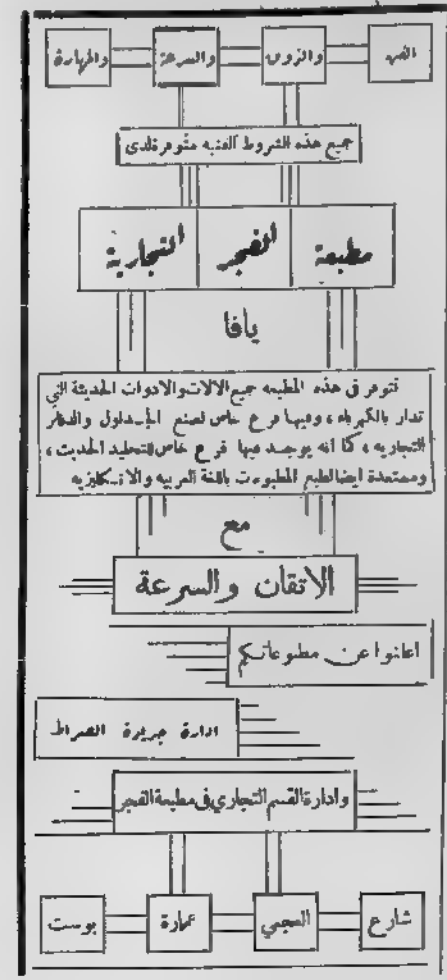 الفن والذوق والسرعة والمهارة
جميع هذه الشروط الفنيه متوفرة لدى
مطبعة الفجر التجارية
يافا
تتوفر في هذه المطبعه جميع الالات والادوات الحديثة التي
تدار بالكهرباء ، وفيها فرع خاص لصنع الجداول والدفاتر
التجاريه ، كما انه يوجد فيها فرع خاص للتجليد الحديث ،
ومستعدة ايضا لطبع المطبوعات باللغة العربيه والانكليزيه
مع
الاتقان والسرعة
اعلنوا عن مطبوعاتكم
ادارة جريدة الصراط
وادارة القسم التجاري في مطبعة الفجر
شارع العجمي عمارة بوست